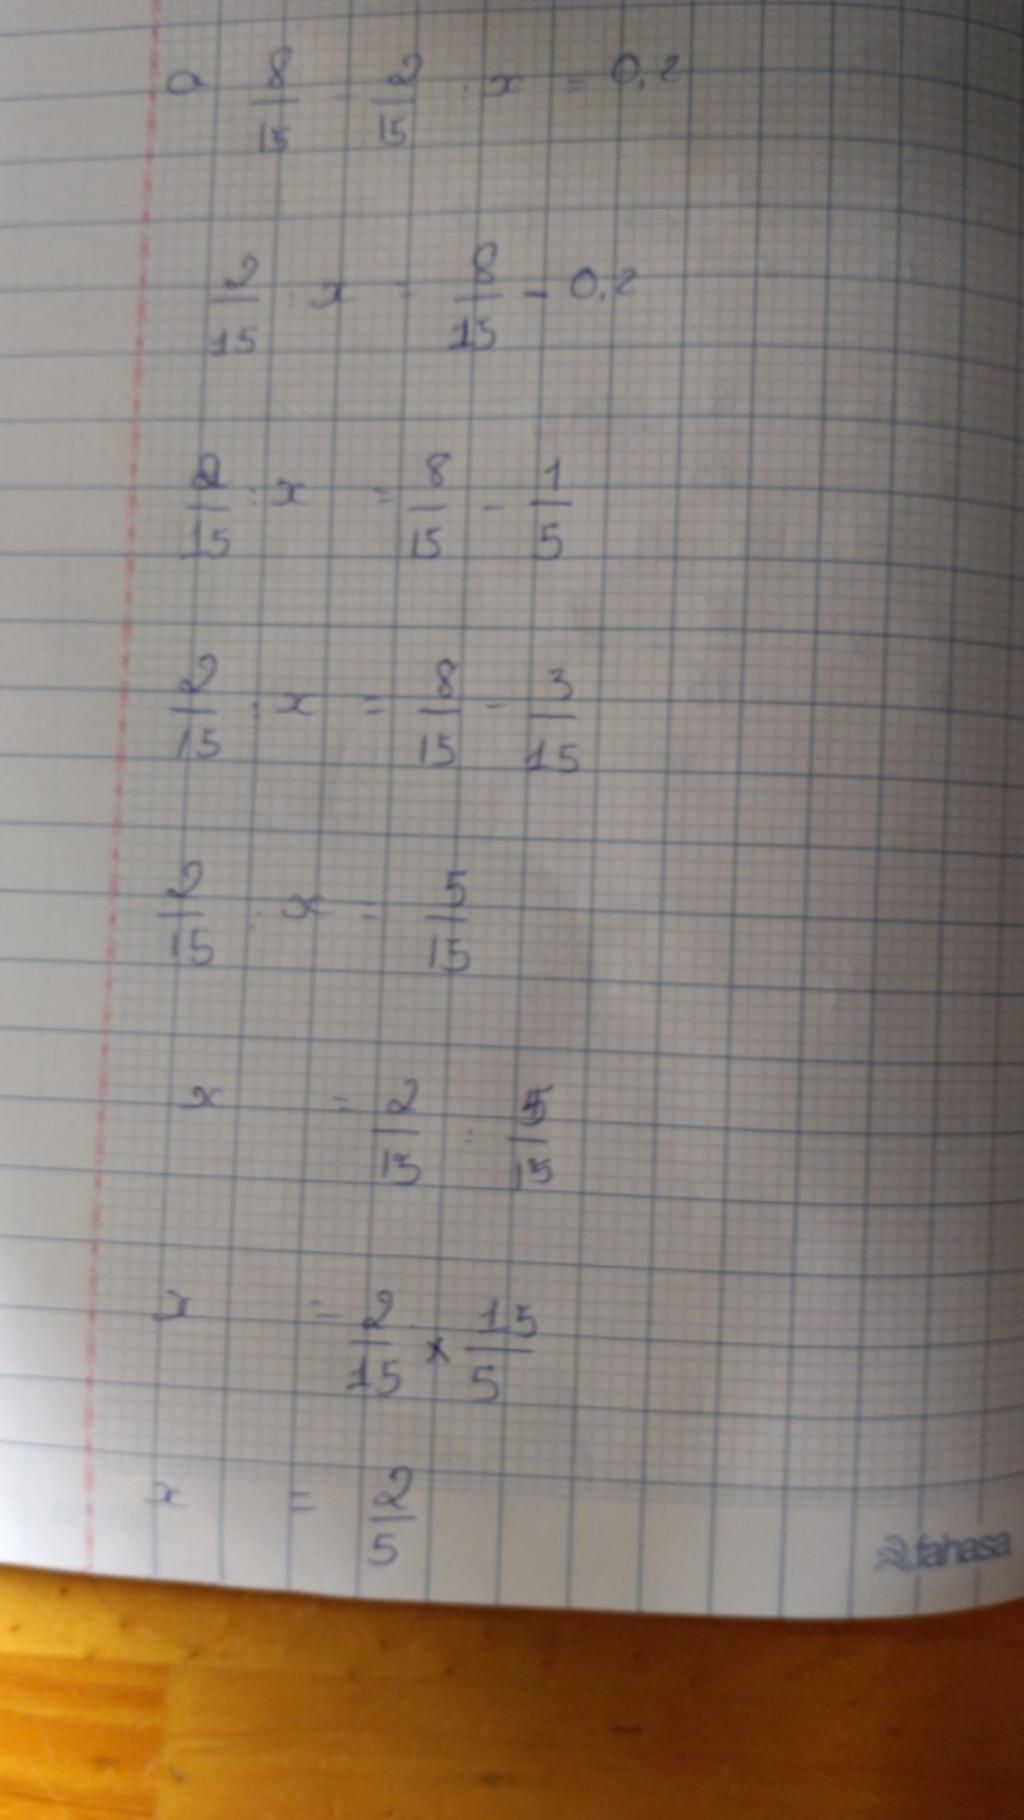 a 8/15 - 2/15 : x = 0,2
2/15 : x = 8/15 - 0,2
2/15 : x = 8/15 - 1/5
2/15 : x = 8/15 - 3/15
2/15 : x = 5/15
x = 2/15 : 5/15
x = 2/15 × 15/5
x = 2/5
fahasa